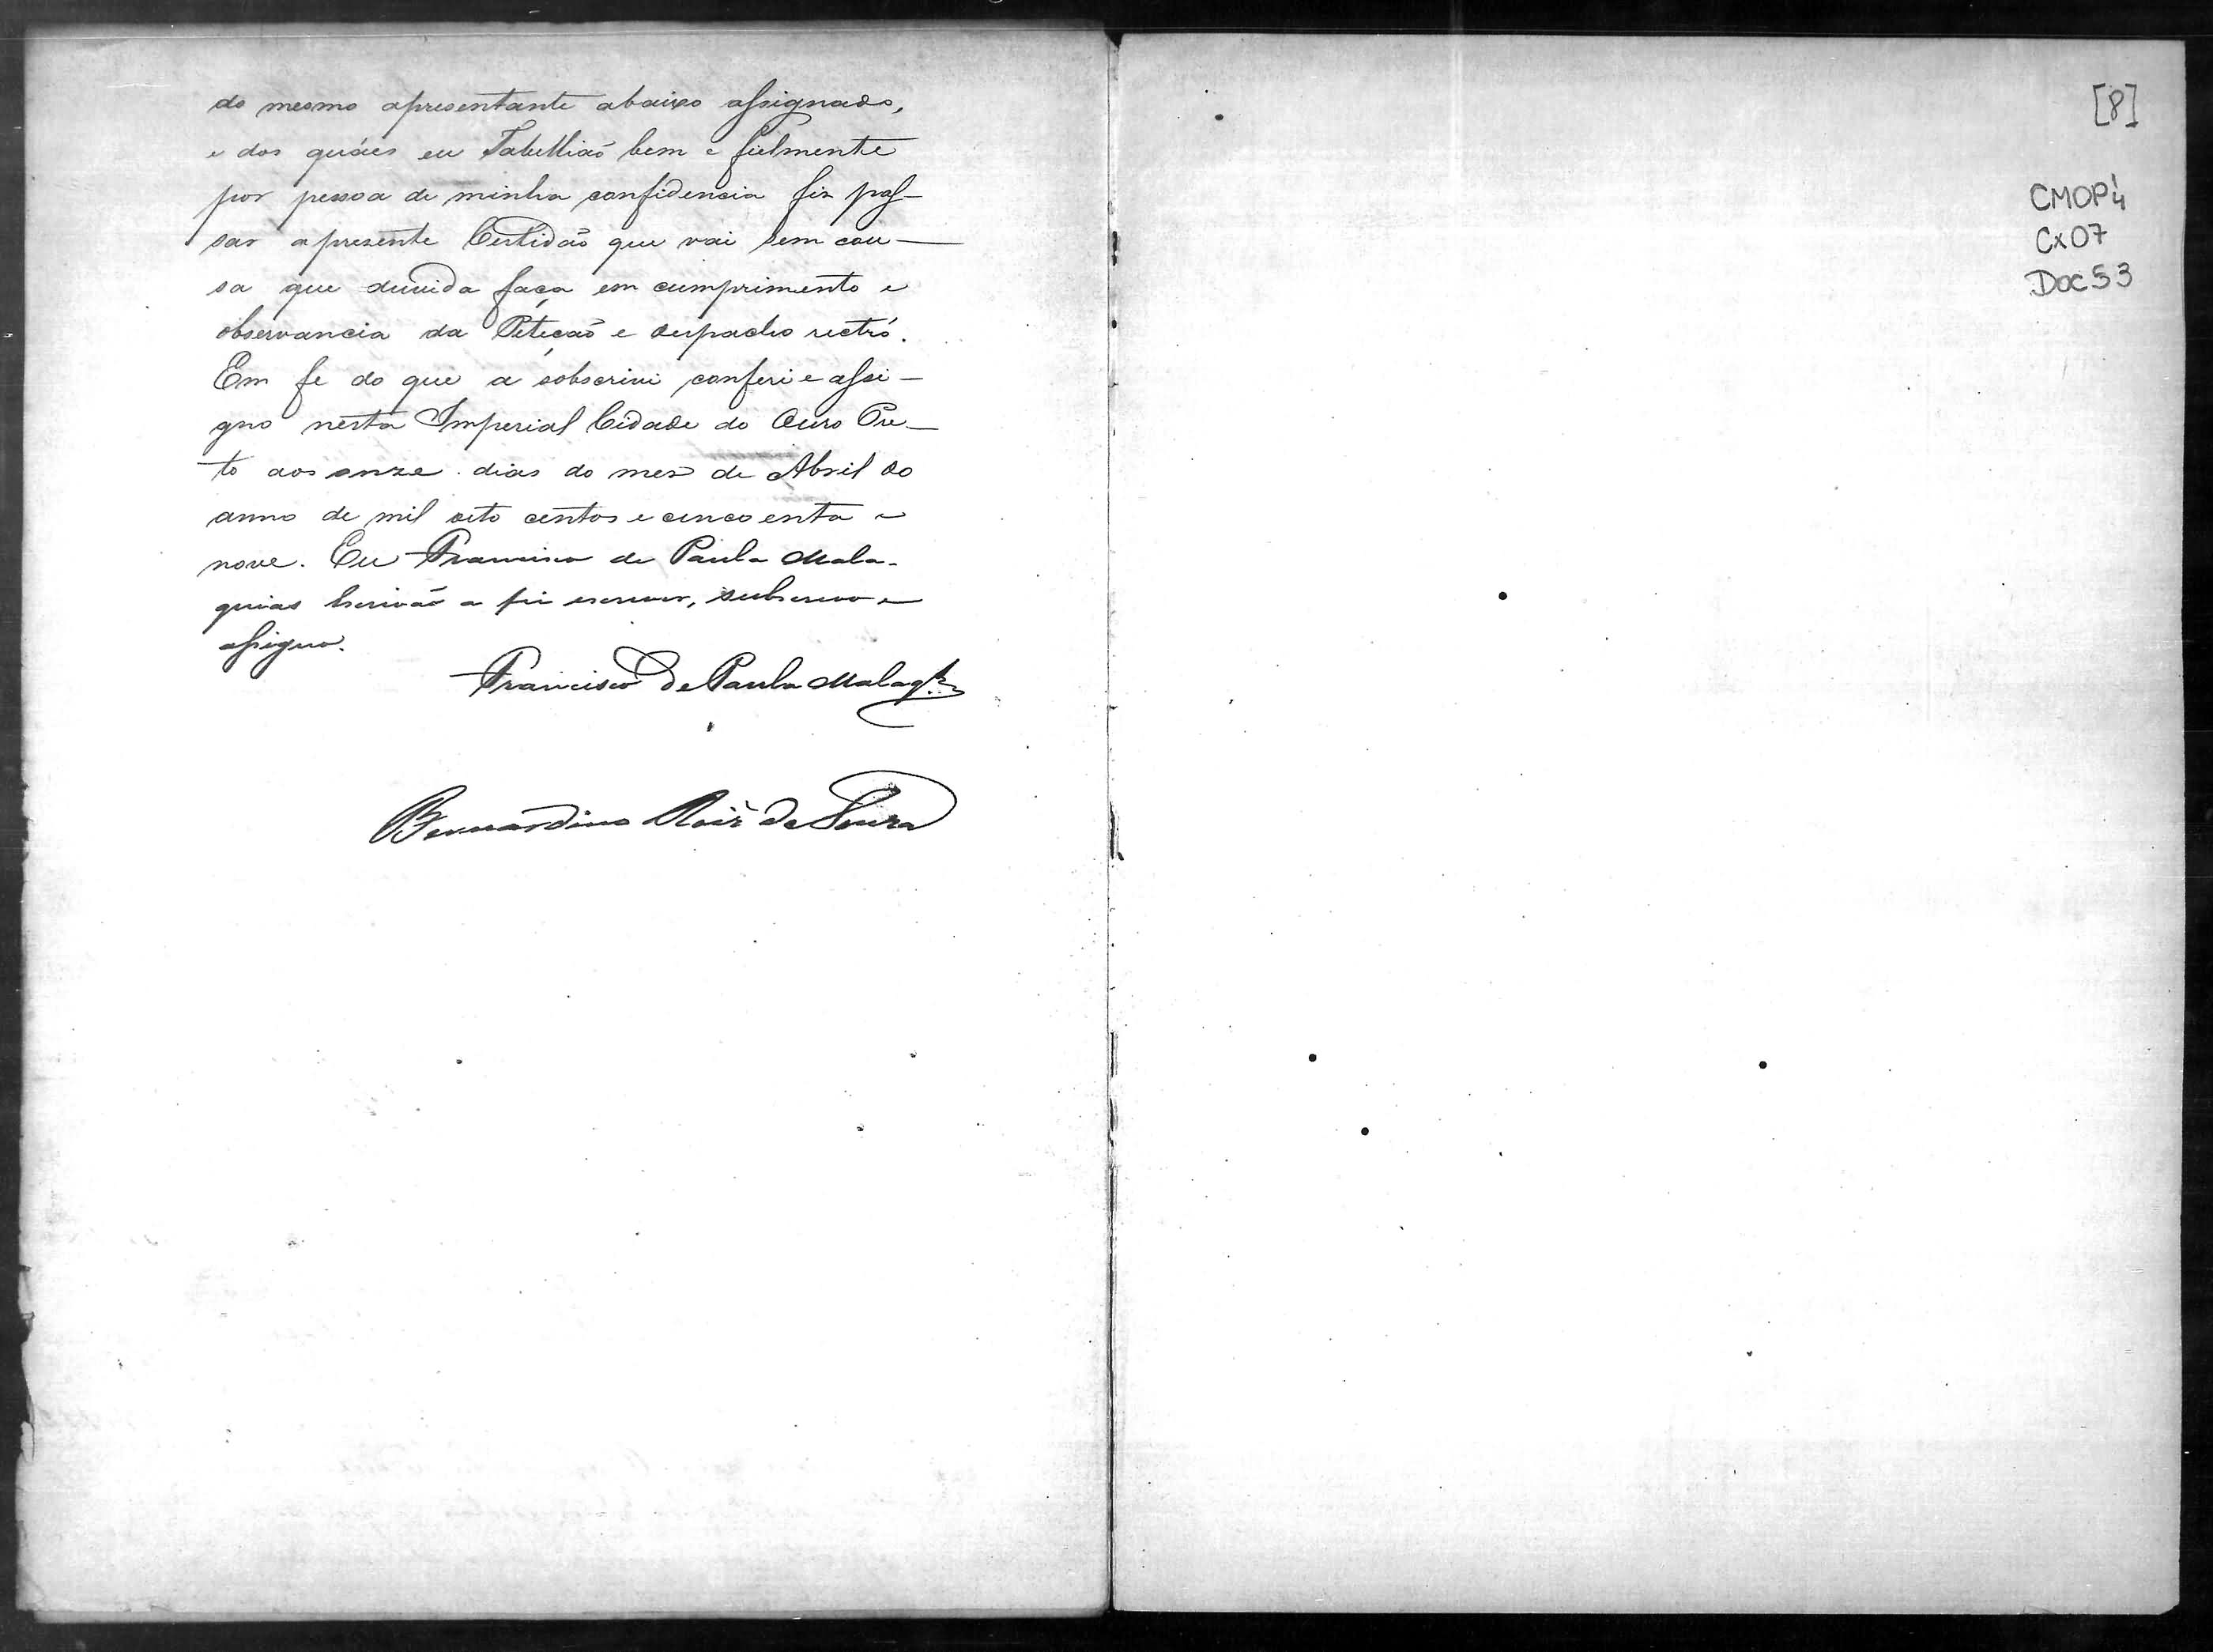 do mesmo apresentante abaixo assignado,
e dos quáes eu Tabellião bem e fielmente
por pessoa de minha confidencia fiz pas-
sar a presente Certidão que vai sem cou-
sa que duvida faça em cumprimento e
observancia da Petição e despacho rectró.
Em fe do que a sobscrivi conferi e assi-
gno nesta Imperial Cidade do Ouro Pre-
to aos onze dias do mes de Abril do
anno de mil oito centos e cincoenta e
nove. Eu Francisco de Paula Mala-
quias Escrivão a fiz escrever, subscrevo e
assigno.
Francisco de Paula Malaqs.
Bernardino Roiz de Souza
[8]
CMOP4
Cx07
Doc53